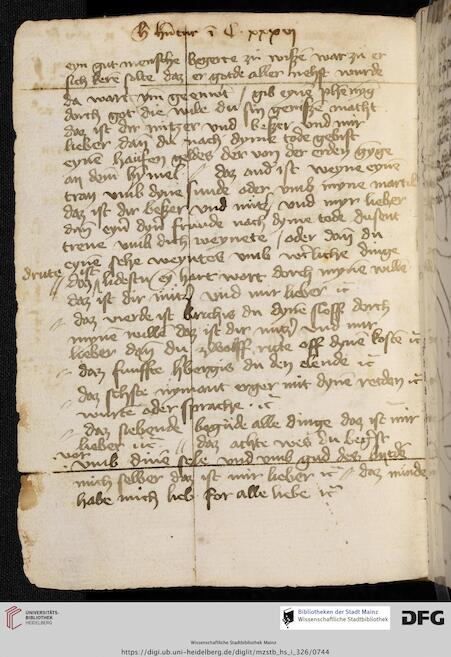 eyn gut mensche begerte zü wißen war zu er
sich kere solte daz er gotde aller nehst wurde
da wart ym geentwort / gib eyne phennyg
dorch got die wile du sin geniße macht
daz ist dir nützer vnd beßer vnd mir
lieber dan du nach dyme tode gebist
eyne hauffen goldes der von der erden gynge
an dem hymel daz and ist weyne eyne
tran vmb dyne sunde oder vmb myne martil
daz ist dir beßer vnd nutz vnd myr lieber
dan eyn dyn frunde nach dyme tode dusent
trene vmb dich weynete / oder dan du
eyne sehe weyntes vmb wertliche dinge
dritte
daz ist lidestu eyn hart wort dorch myne wille
daz ist dir nutz vnd mir lieber
daz vierde ist brichis du dyne sloff dorch
myne wille daz ist dir nutz vnd mir
lieber dan du zwolff off dyne koste
daz funffte hbergis du den elende
daz sehste nymant erger mit dyne
worte oder sprache
daz siebende alle dinge daz ist mir
lieber daz achte wes du
vor
vmb dine sele vnd vmb
mich selber daz ist mir lieber daz
habe mich lieb for alle liebe
UNIVERSITÄTS-
BIBLIOTHEK
HEIDELBERG
Bibliotheken der Stadt Mainz
Wissenschaftliche Stadtbibliothek
DFG
Wissenschaftliche Stadtbibliothek Mainz
https://digi.ub.uni-heidelberg.de/diglit/mzstb_hs_i_326/0744